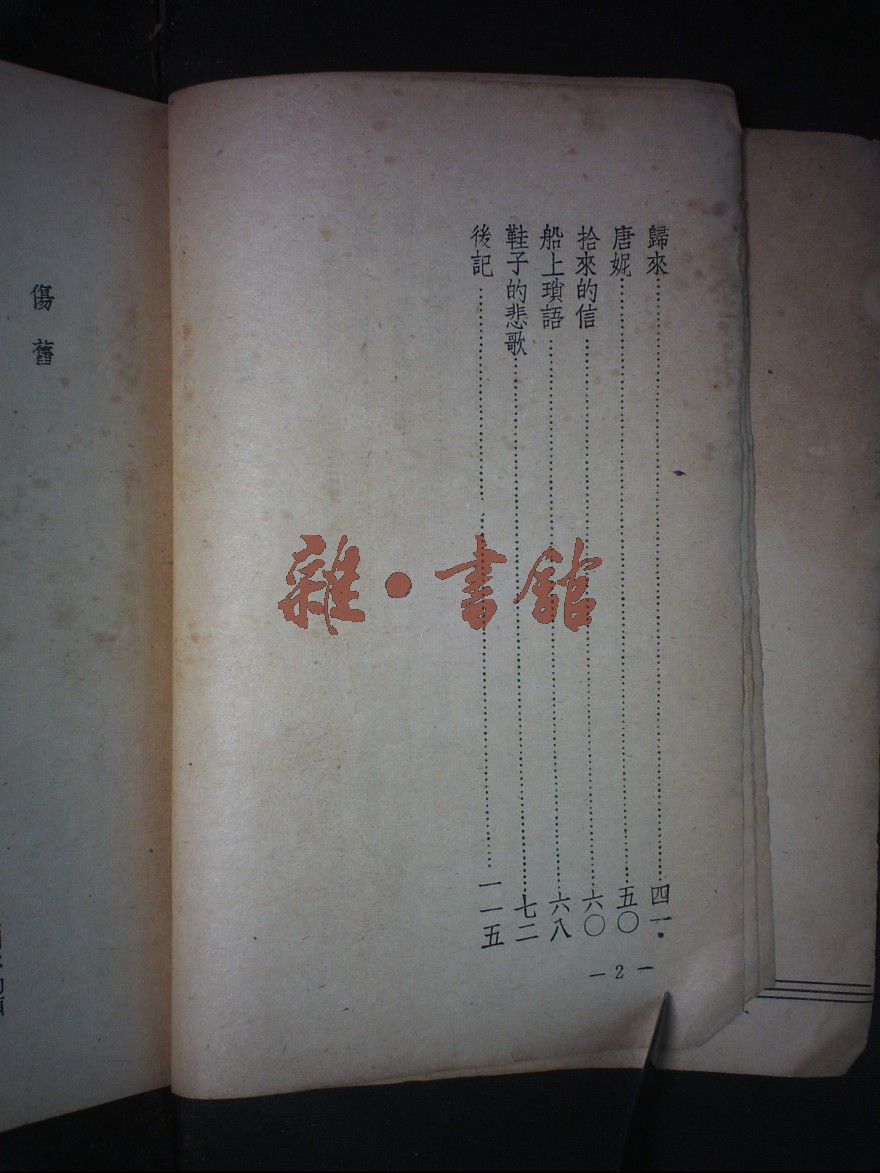 歸來……四一
唐妮……五〇
拾來的信……六〇
船上瑣語……六八
鞋子的悲歌……七二
後記……一一五
—2—
傷舊
雜·書館